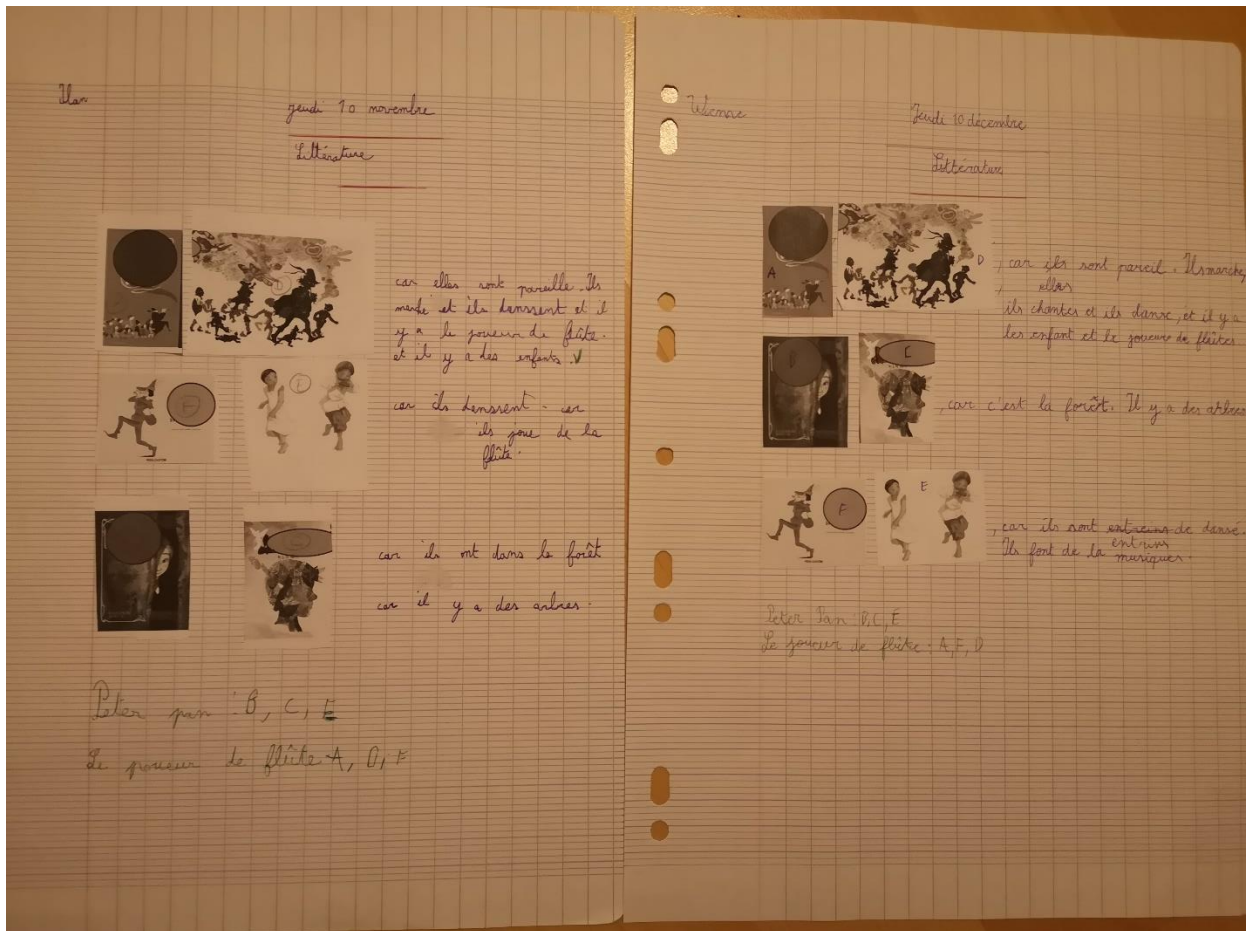 Ilan
jeudi 10 novembre
Littérature
car elles sont pareille. Ils
marche et ils danssent et il
y a le joueur de flûte.
et il y a des enfants.
car ils danssent - car
ils joue de la
flûte.
car ils ont dans la forêt
car il y a des arbres.
Peter pan : B, C, E
Le joueur de flûte A, D, F
Jeudi 10 décembre
Littérature
A
D
, car ils sont pareil. Ils marche,
elles
ils chantes et ils danse, et il y a
les enfant et le joueur de flûtes
C
, car c'est la forêt. Il y a des arbres
F
E
, car ils sont entreins de danse.
entrins
Ils font de la musiques.
Peter Pan : B, C, E
Le joueur de flûte : A, F, D